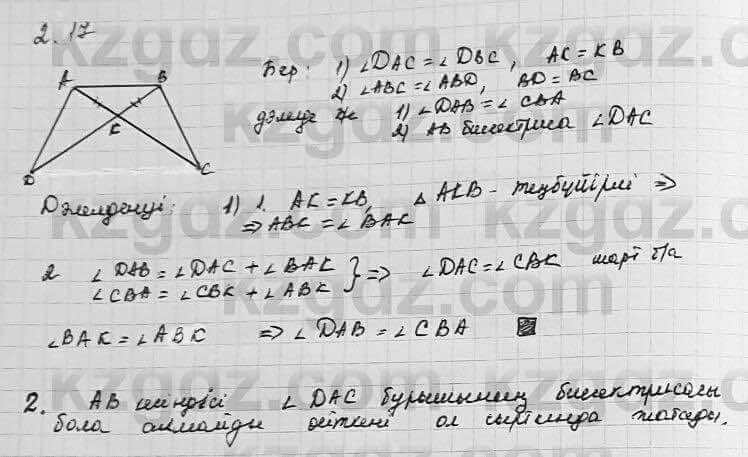 2.17
A B
K
D C
Бер: 1) ∠DAC = ∠DBC, AK = KB
2) ∠ABC = ∠ABD, BD = BC
дәлелдеу 1) ∠DAB = ∠CBA
2) AB биссектриса ∠DAC
Дәлелдеуі: 1) 1. AK = KB, △ AKB - теңбүйірлі ⇒
⇒ ABK = ∠BAK
2 ∠DAB = ∠DAC + ∠BAK
∠CBA = ∠CBK + ∠ABK } ⇒ ∠DAC = ∠CBK шарт
∠BAK = ∠ABK ⇒ ∠DAB = ∠CBA
2. AB кесіндісі ∠DAC бұрышының биссектрисасы
бола алмайды өйткені ол сыртында жатады.
kzgdz.com